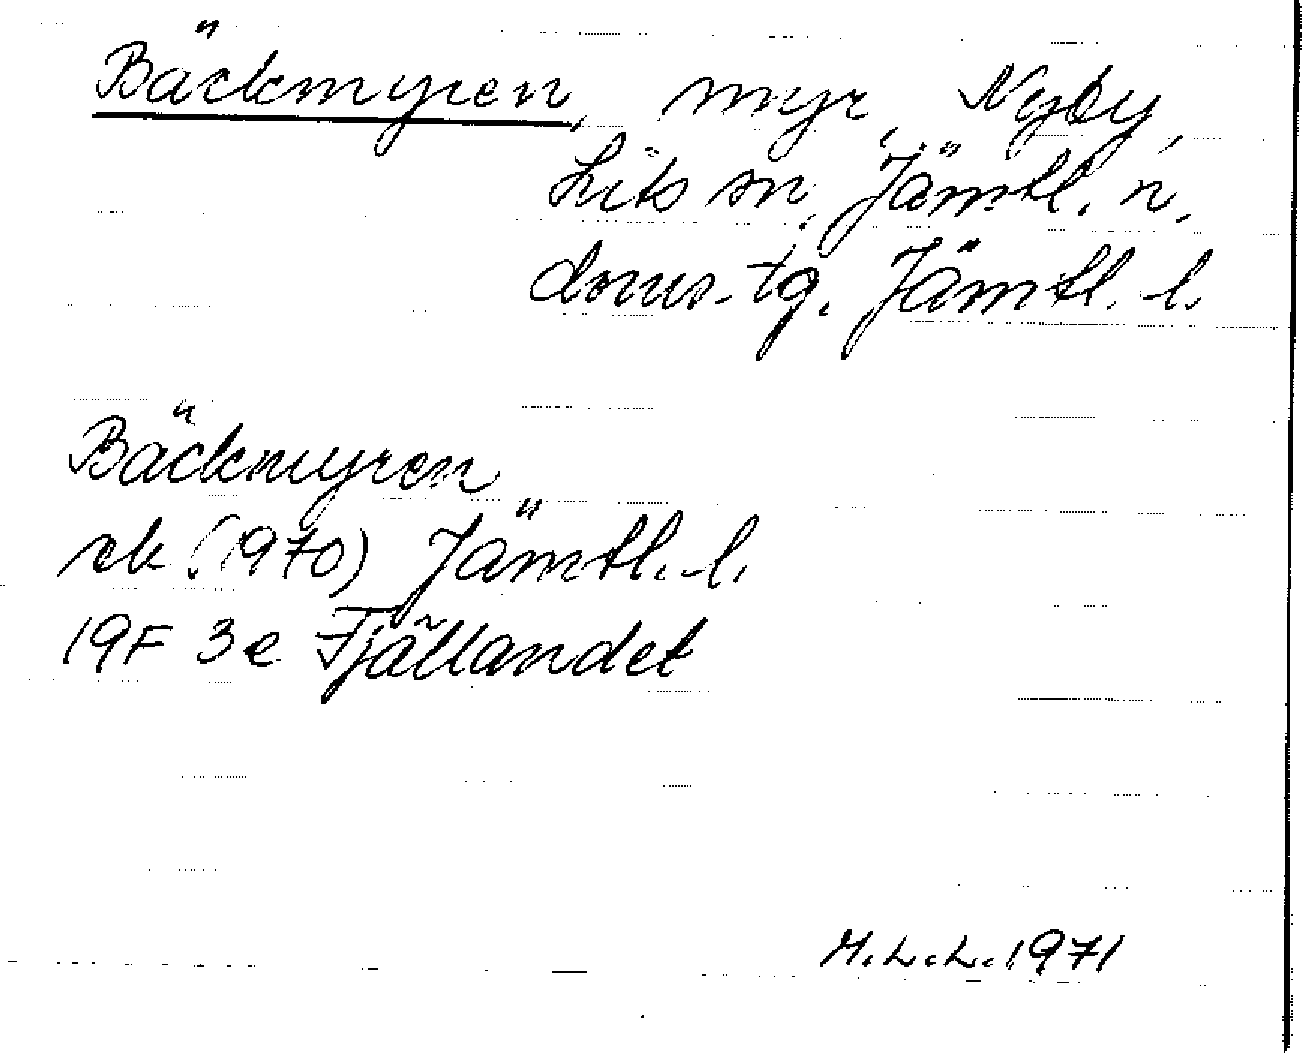 Bäckmyren, myr, Nyby,
Lits sn, Jämtl. n.
doms.-tg. Jämtl. l.
Bäckmyren
ek (1970) Jämtl. l.
19F 3e Fjällandet
M.L.L. 1971